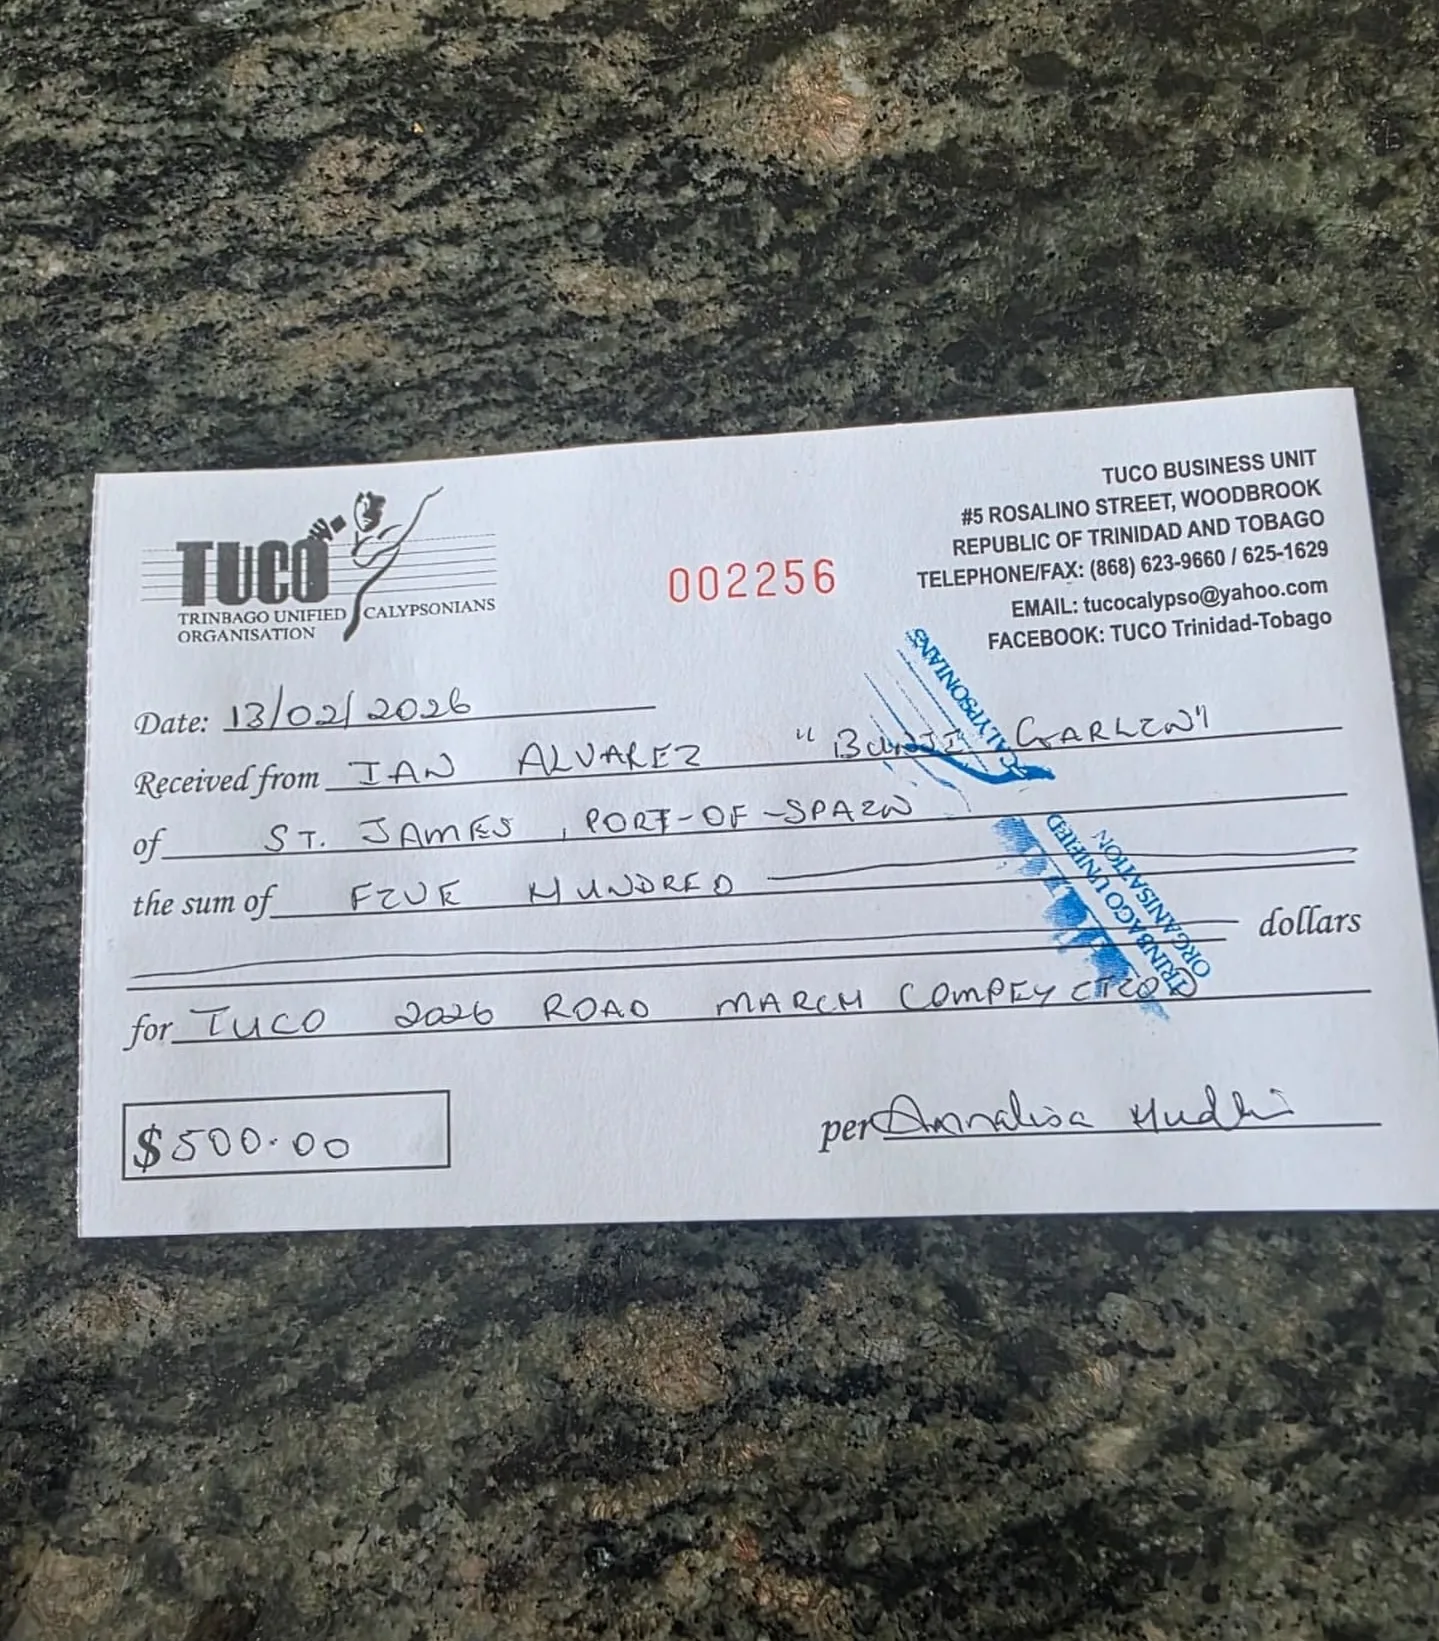 TUCO
TRINBAGO UNIFIED CALYPSONIANS
ORGANISATION
002256
TUCO BUSINESS UNIT
#5 ROSALINO STREET, WOODBROOK
REPUBLIC OF TRINIDAD AND TOBAGO
TELEPHONE/FAX: (868) 623-9660 / 625-1629
EMAIL: tucocalypso@yahoo.com
FACEBOOK: TUCO Trinidad-Tobago
Date: 13/02/2026
Received from IAN ALVAREZ "BUNJI GARLIN"
of ST. JAMES, PORT-OF-SPAIN
the sum of FIVE HUNDRED
dollars
for TUCO 2026 ROAD MARCH
$500.00
per Annalisa
CALYPSONIANS
TRINBAGO UNIFIED
ORGANISATION